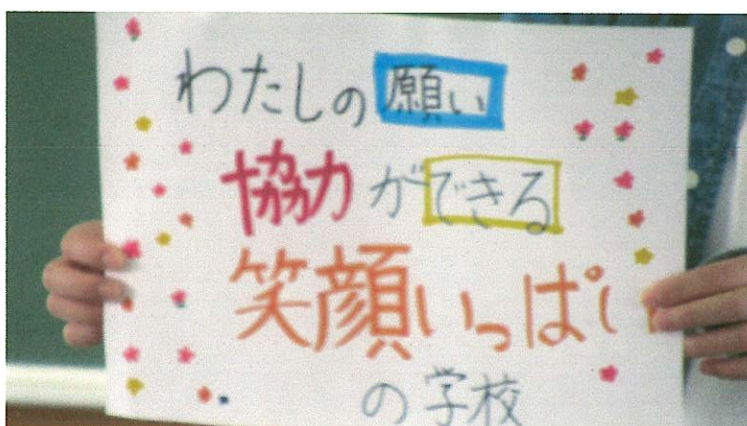 わたしの願い
協力ができる
笑顔いっぱい
の学校